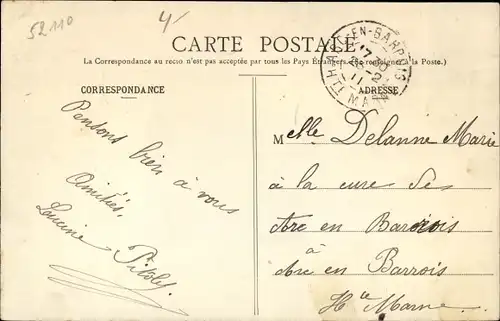 52110
4/-
CARTE POSTALE
(La Correspondance au recto n'est pas acceptée par tous les Pays Étrangers. (Se renseigner à la Poste.)
CORRESPONDANCE
ADRESSE
Pensons bien à vous
Amitiés,
Lucine Pitolet
Melle Delanne Marie
à la cure de
Arc en Barrois
à
Arc en Barrois
Hte Marne